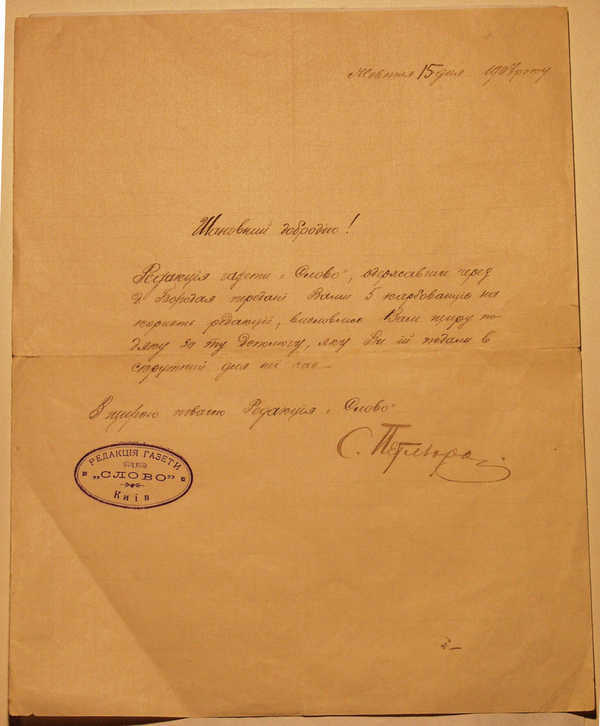 Жовтня 15 дня 1907 року
Шановний добродію!
Редакція газети „Слово", одержавши через
д. Бородая передані Вами 5 карбованців на
користь редакції, висловлює Вам щиру по-
дяку за ту допомогу, яку Ви їй подали в
скрутний для неї час.
З щирою повагою Редакція „Слово"
С. Петлюра.
РЕДАКЦІЯ ГАЗЕТИ
„СЛОВО"
Київ